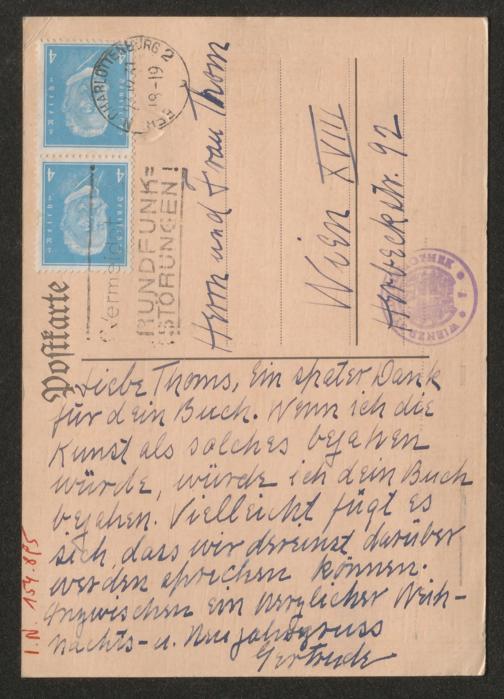 4
Deutsches Reich
4
Deutsches Reich
CHARLOTTENBURG 2
18-19
Vermeidet
RUNDFUNK=
STÖRUNGEN!
Postkarte
Herrn und Frau Thom
Wien XVIII
Herbeckstr. 92
Liebe Thoms, Ein später Dank
für dein Buch. Wenn ich die
Kunst als solches bejahen
würde, würde ich dein Buch
bejahen. Vielleicht fügt es
sich, dass wir dereinst darüber
werden sprechen können.
Inzwischen ein herzlicher Weih-
nachts- u. Neujahrsgruss
Gertrude
I.N. 154.895